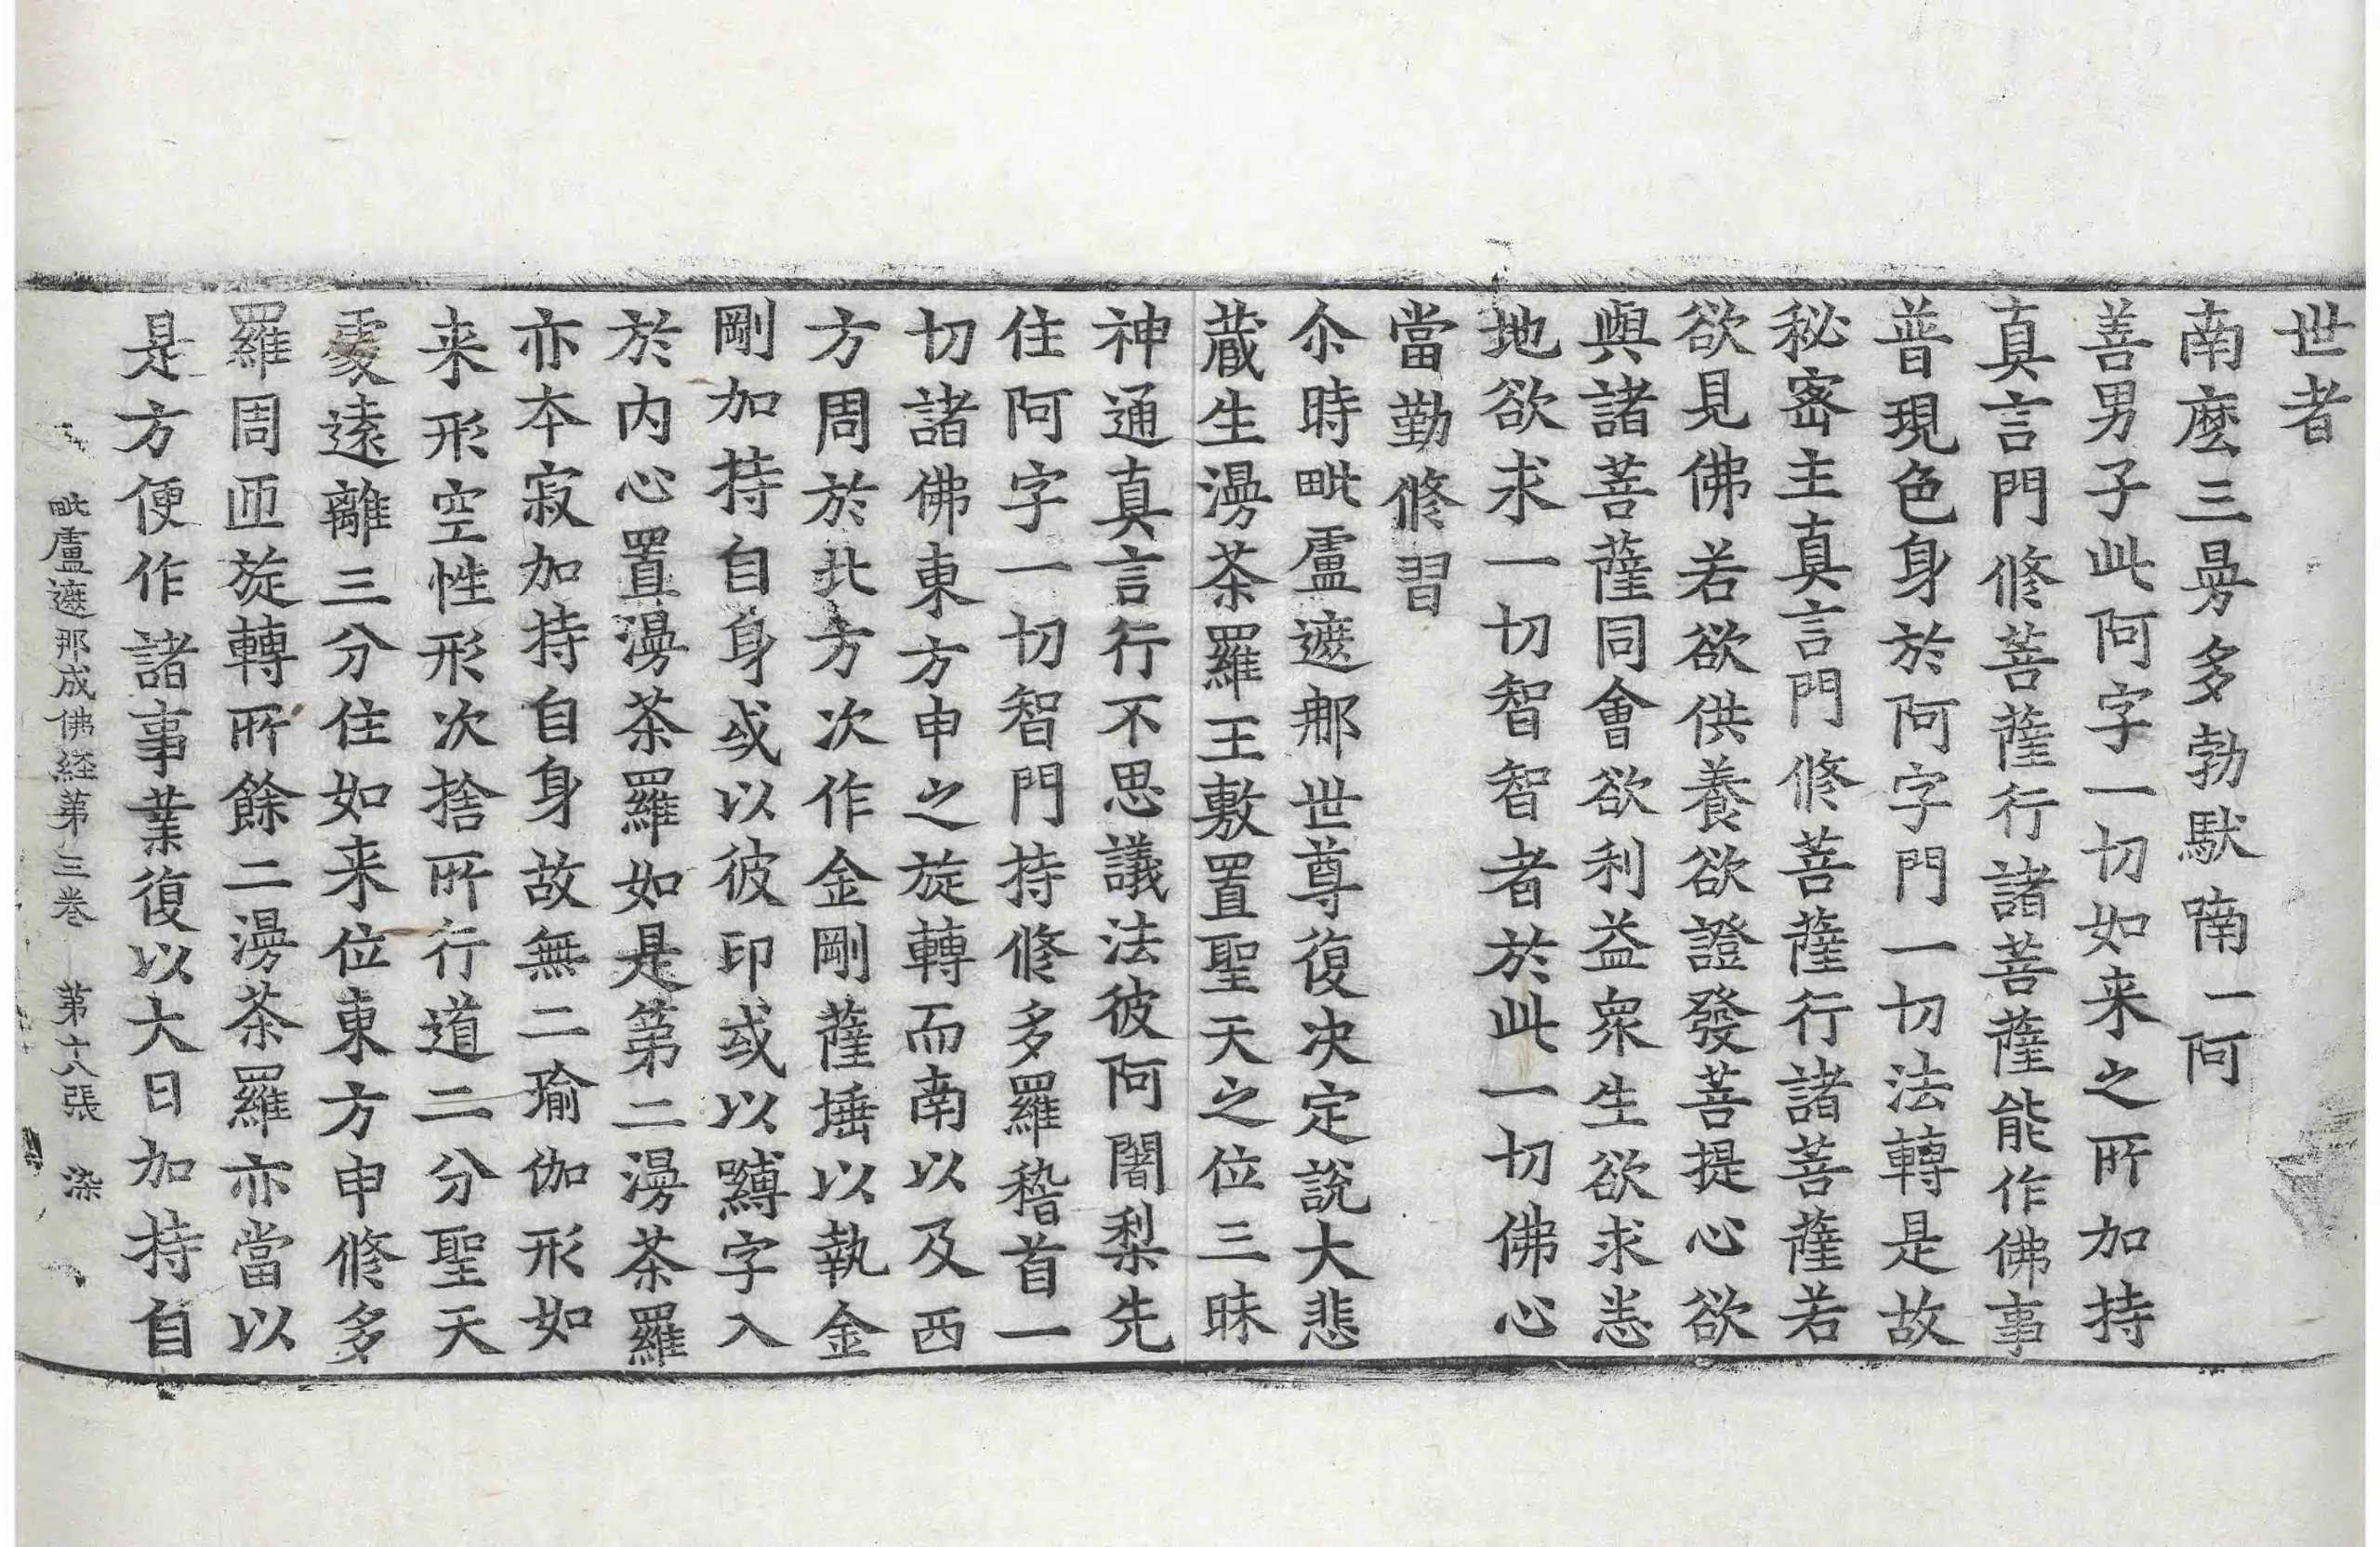 世者
南麼三曼多勃馱喃一阿
善男子此阿字一切如来之所加持
真言門修菩薩行諸菩薩能作佛事
普現色身於阿字門一切法轉是故
秘密主真言門修菩薩行諸菩薩若
欲見佛若欲供養欲證發菩提心欲
與諸菩薩同會欲利益衆生欲求悉
地欲求一切智智者於此一切佛心
當勤修習
尒時毗盧遮那世尊復决定說大悲
藏生漫茶羅王敷置聖天之位三昧
神通真言行不思議法彼阿闍梨先
住阿字一切智門持修多羅稽首一
切諸佛東方申之旋轉而南以及西
方周於北方次作金剛薩埵以執金
剛加持自身或以彼印或以嚩字入
於内心置漫茶羅如是第二漫茶羅
亦本寂加持自身故無二瑜伽形如
来形空性形次捨所行道二分聖天
處遠離三分住如来位東方申修多
羅周匝旋轉所餘二漫茶羅亦當以
是方便作諸事業復以大日加持自
毗盧遮那成佛経第三卷 第六張 染